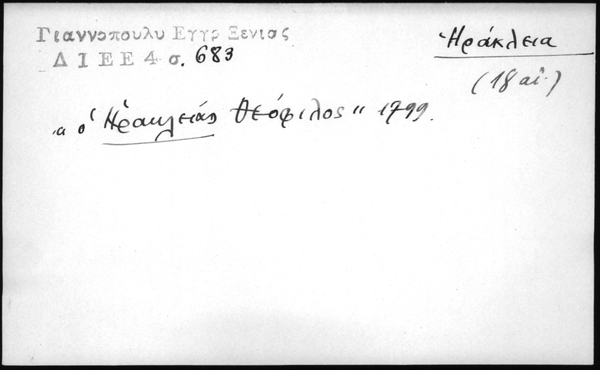 Γιαννοπουλυ Εγγρ Ξενιας
ΔΙΕΕ 4 σ. 683
Ἡράκλεια
(18 αἰ.)
"ὁ Ἡρακλείας Θεόφιλος" 1799.